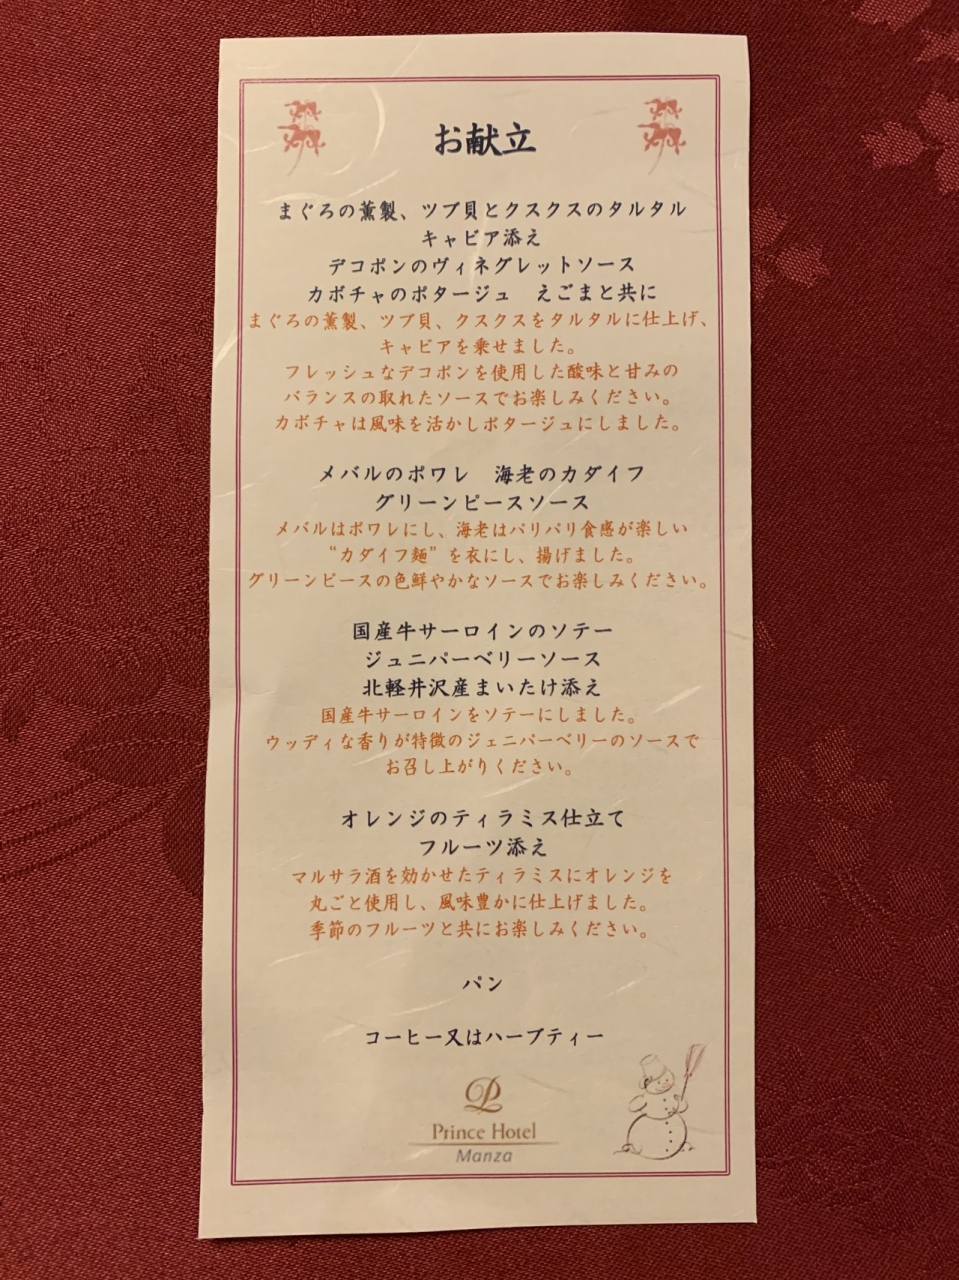 お献立
まぐろの薫製、ツブ貝とクスクスのタルタル
キャビア添え
デコポンのヴィネグレットソース
カボチャのポタージュ　えごまと共に
まぐろの薫製、ツブ貝、クスクスをタルタルに仕上げ、
キャビアを乗せました。
フレッシュなデコポンを使用した酸味と甘みの
バランスの取れたソースでお楽しみください。
カボチャは風味を活かしポタージュにしました。
メバルのポワレ　海老のカダイフ
グリーンピースソース
メバルはポワレにし、海老はパリパリ食感が楽しい
“カダイフ麺”を衣にし、揚げました。
グリーンピースの色鮮やかなソースでお楽しみください。
国産牛サーロインのソテー
ジュニパーベリーソース
北軽井沢産まいたけ添え
国産牛サーロインをソテーにしました。
ウッディな香りが特徴のジェニパーベリーのソースで
お召し上がりください。
オレンジのティラミス仕立て
フルーツ添え
マルサラ酒を効かせたティラミスにオレンジを
丸ごと使用し、風味豊かに仕上げました。
季節のフルーツと共にお楽しみください。
パン
コーヒー又はハーブティー
Prince Hotel
Manza